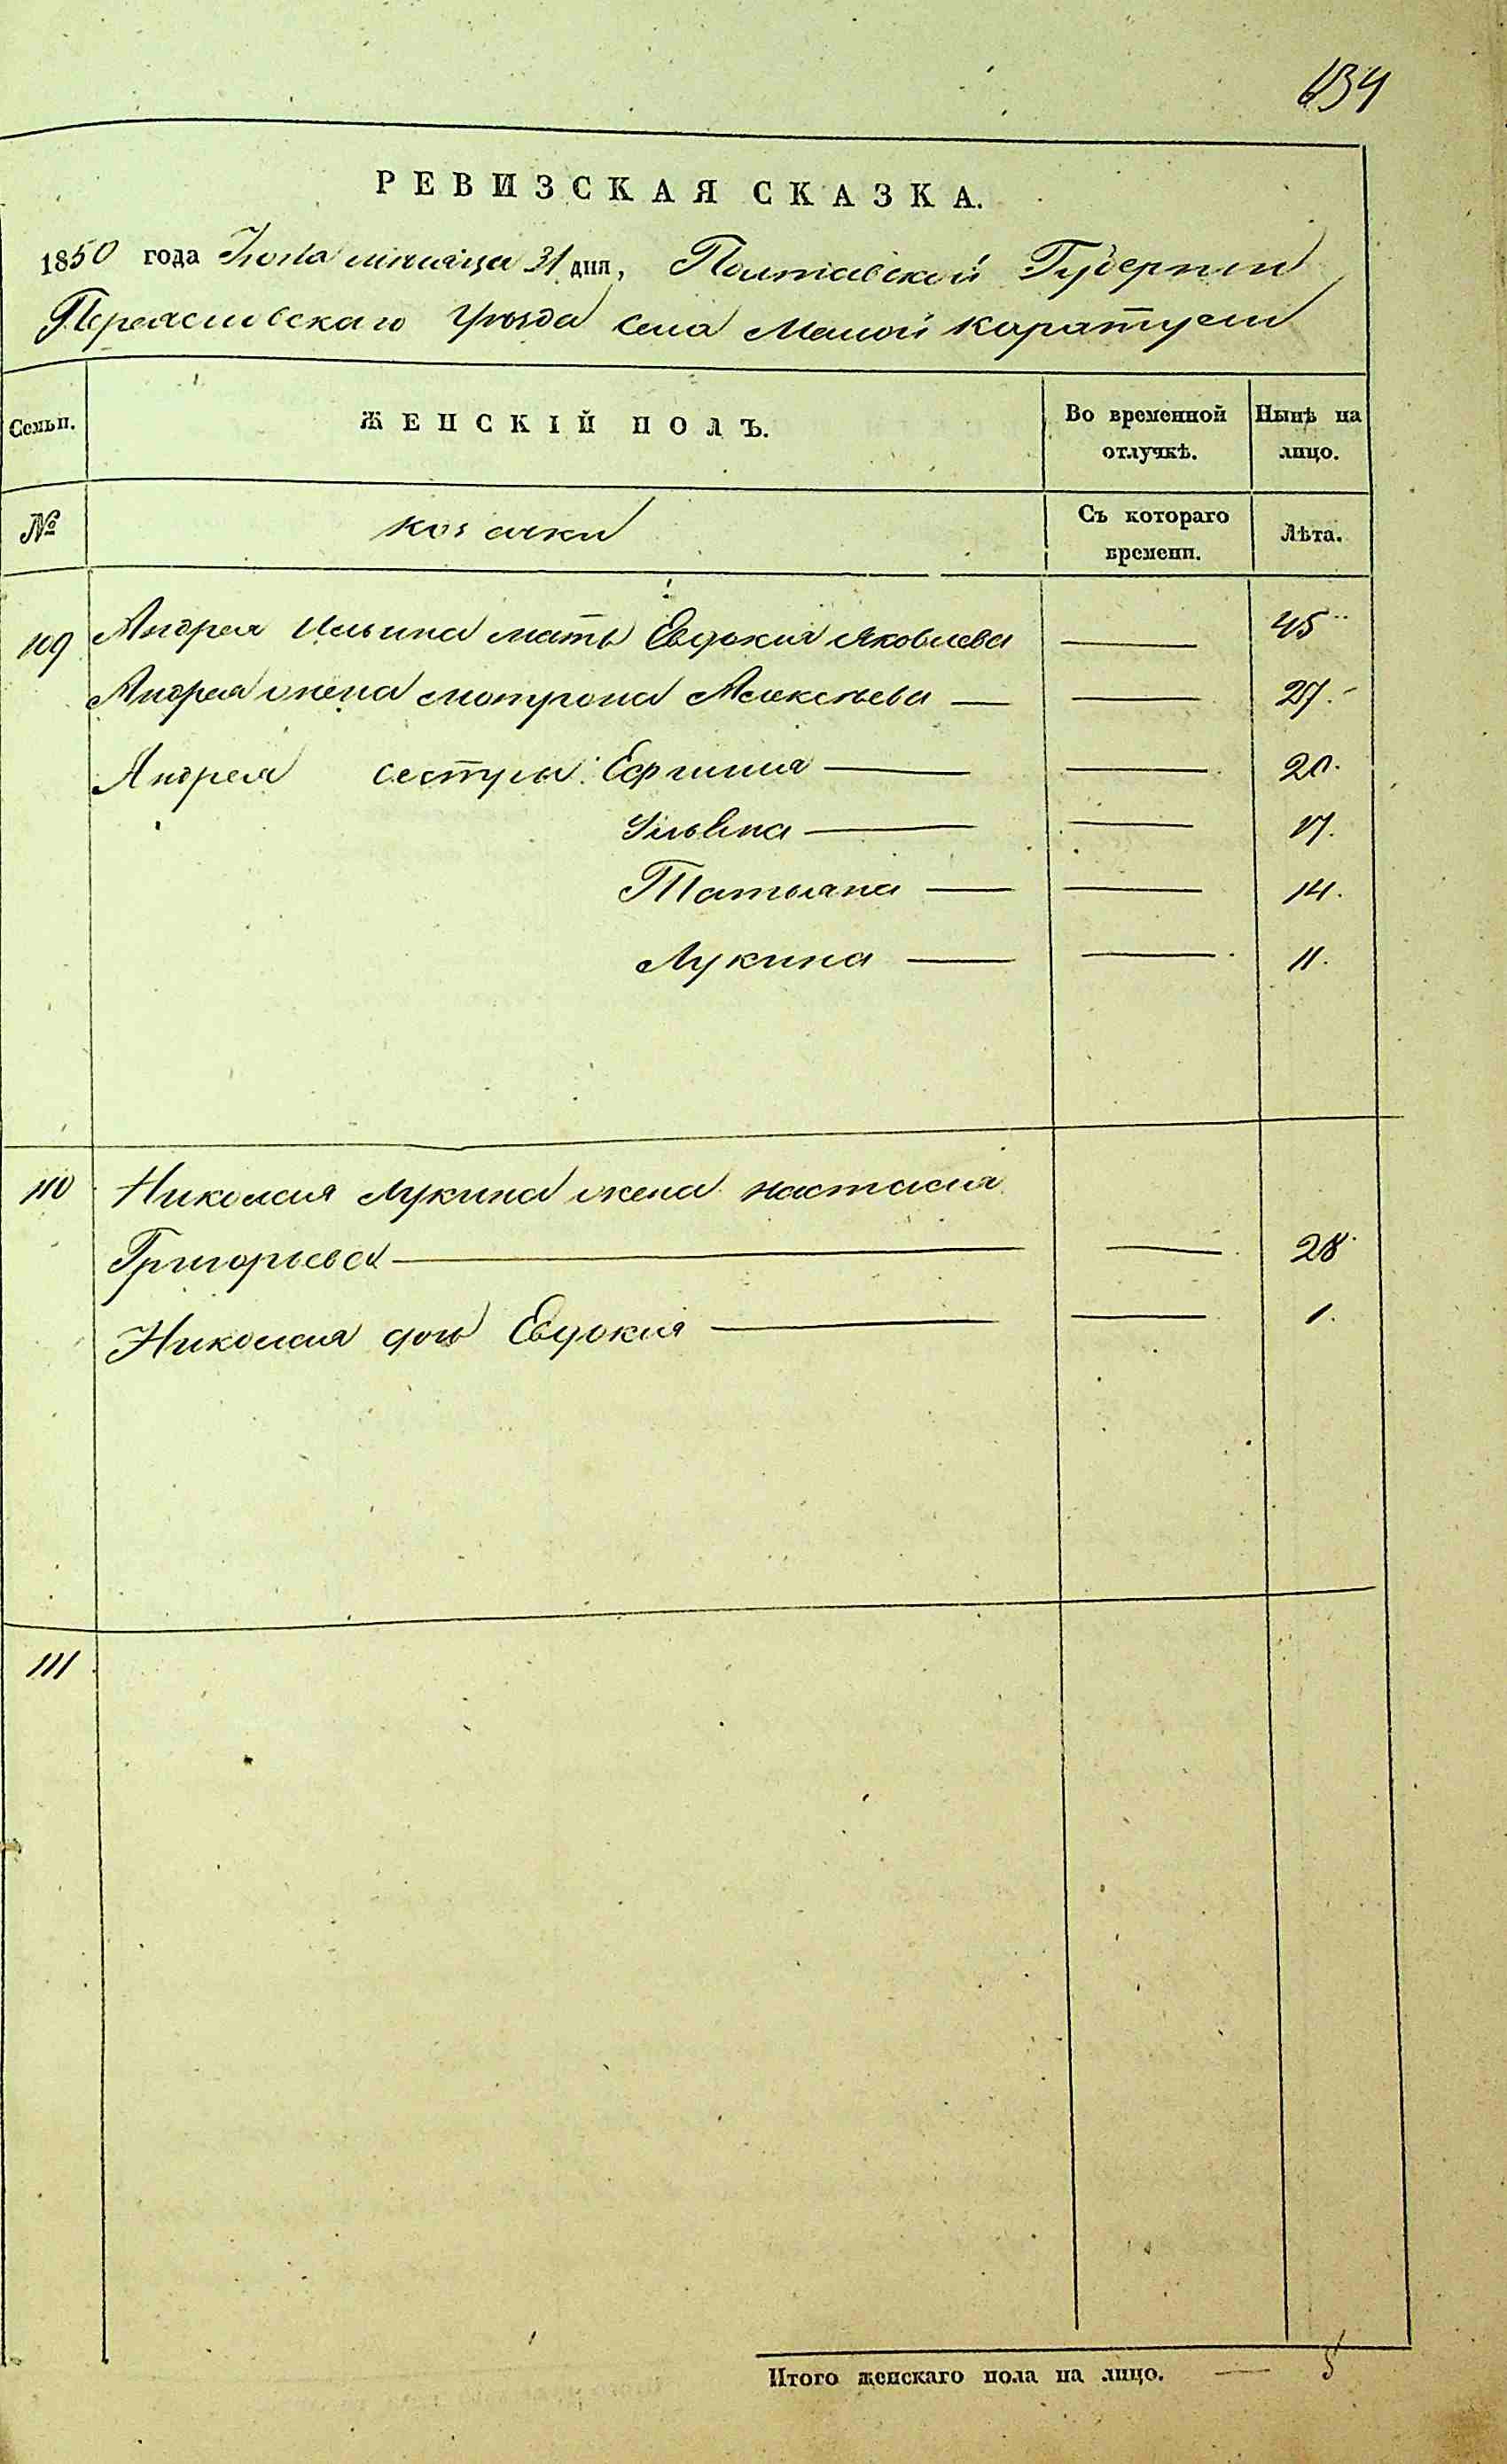 634
РЕВИЗСКАЯ СКАЗКА.
1850 года Июля мѣсяца 31 дня, Полтавской Губернии
Переясловского Уѣзда села Малой каратули
Семьи. ЖЕНСКІЙ ПОЛЪ. Во временной отлучкѣ. Нынѣ на лицо.
№ козачки Съ котораго времени. Лѣта.
109 Андрея Ильина мать Евдокия Яковлева — 45
Андрея жена мотрона Алексѣева — — 27.
Андрея сестры: Ефимия — — 20.
Ульяна — — 17.
Татьяна — — 14.
Лукина — — 11.
110 Николая Лукина жена настасия
Григорьева — — 28
Николая дочь Евдокия — — 1.
111
Итого женскаго пола на лицо. —